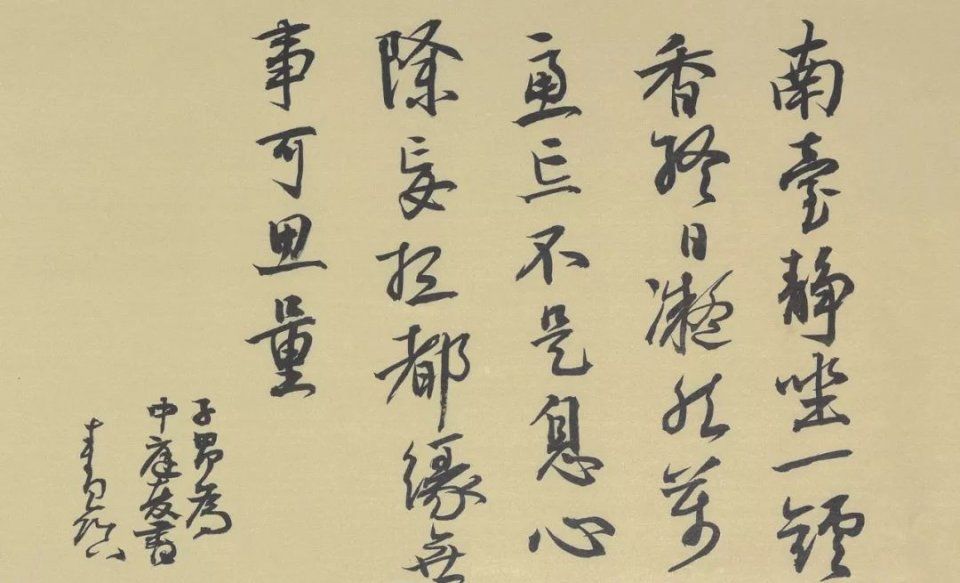 南臺静坐一鑪
香終日凝然萬
慮亡不是息心
除妄想都緣無
事可思量
子男為
中庭友書